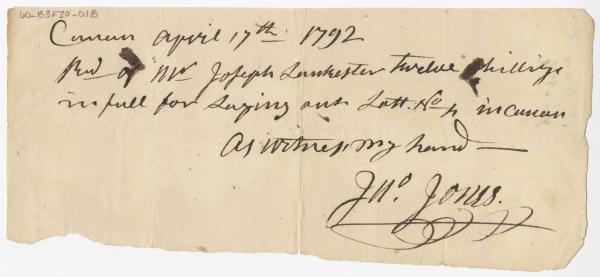 60-B3F20-01B
Canaan April 17th 1792
Recd of Mr Joseph Lankester twelve shillings
in full for Laying out Lott No 4 in Canaan
As witness my hand
Jno Jones.